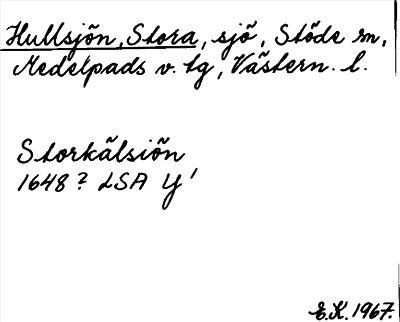 Hullsjön, Stora, sjö, Stöde sn,
Medelpads v. tg, Västern. l.
Storkälsiön
1648? LSA Y'
E.K. 1967.